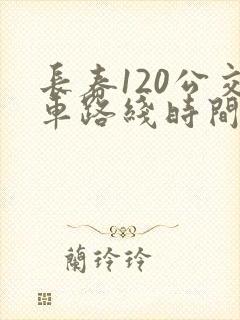 長春120公交
車路綫時間
蘭玲玲